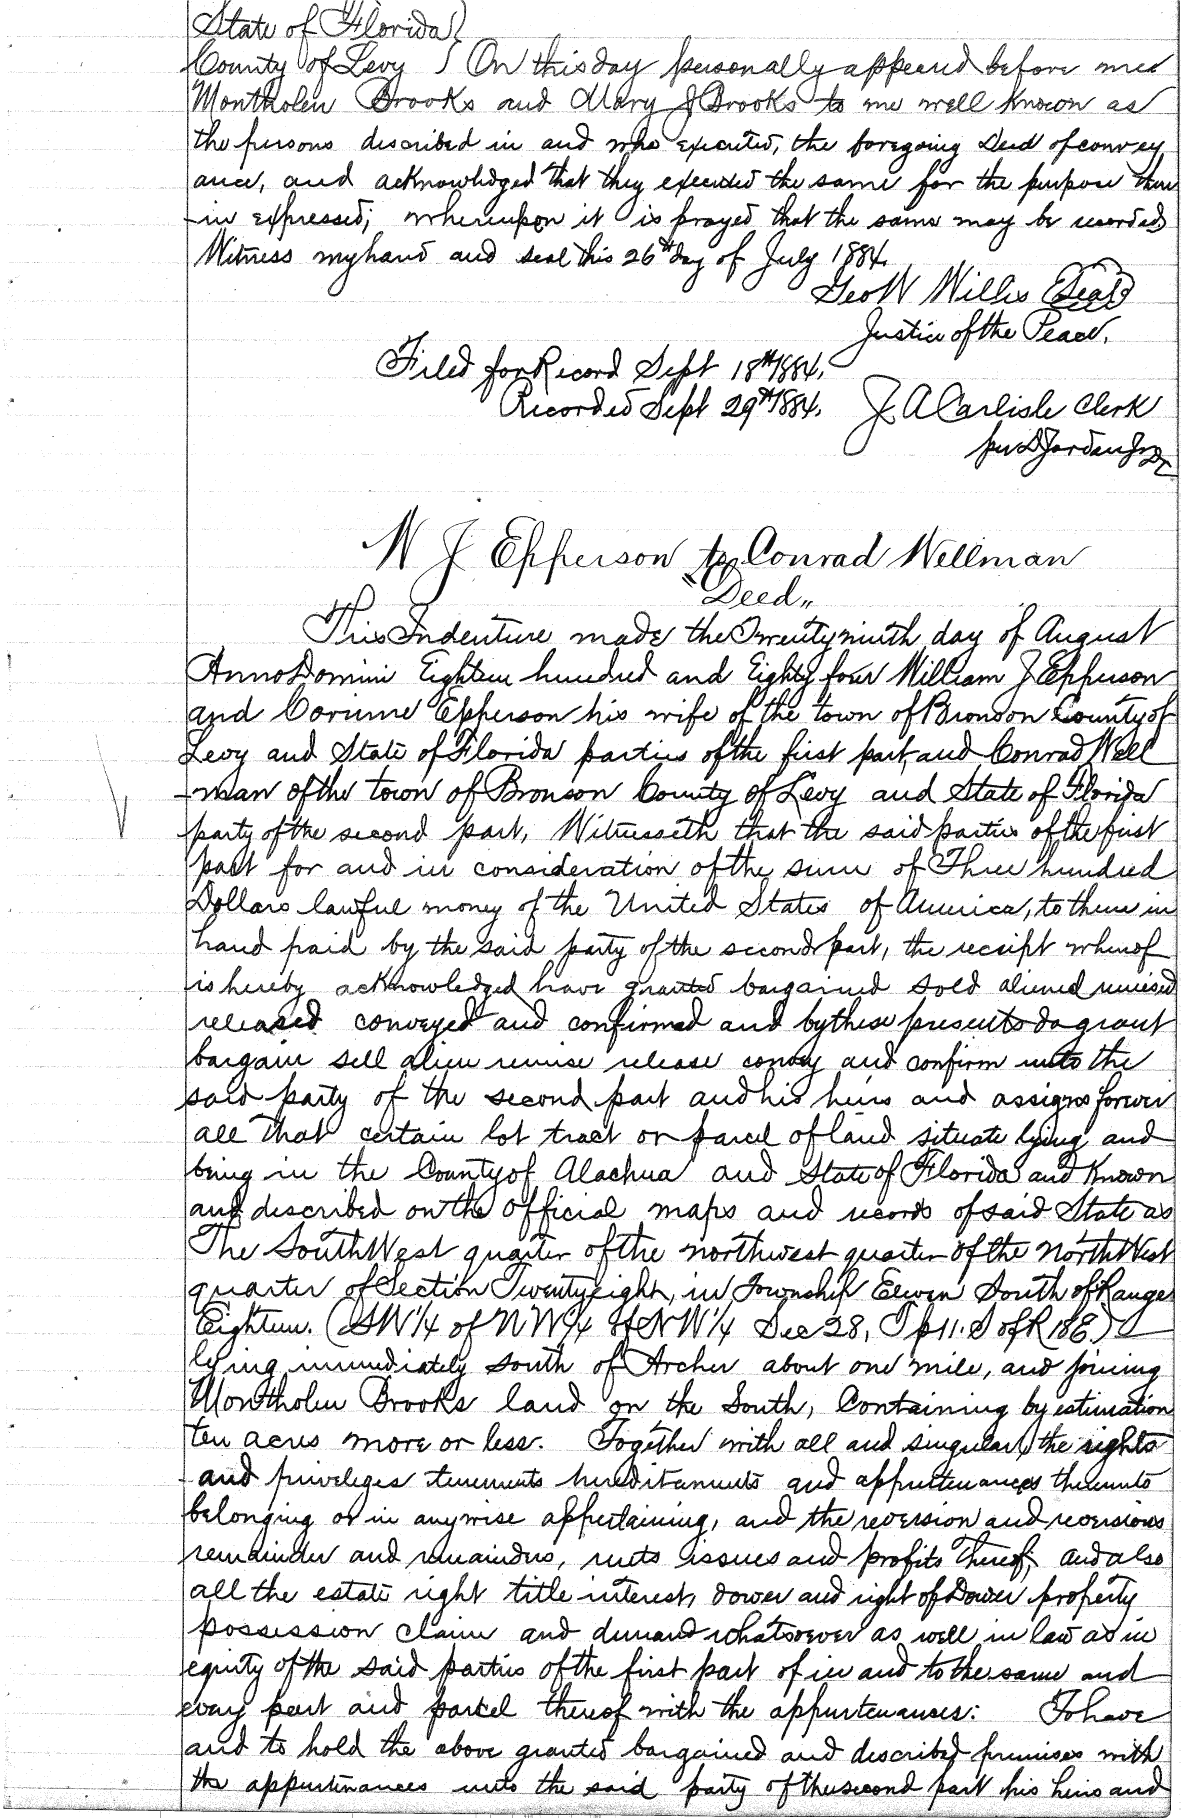 State of Florida }
County of Levy } On this day personally appeared before me
Montholen Brooks and Mary J Brooks to me well known as
the persons described in and who executed, the foregoing Deed of convey
ance, and acknowledged that they executed the same for the purpose there
in expressed; whereupon it is prayed that the same may be recorded
Witness my hand and seal this 26th day of July 1884.
Geo W Willis (Seal)
Justice of the Peace.
Filed for Record Sept 18th 1884.
Recorded Sept 29th 1884. J. A Carlisle Clerk
per D Jordan Jr DC
W J Epperson to Conrad Wellman
"Deed"
This Indenture made the Twenty ninth day of August
Anno Domini Eighteen hundred and Eighty four William J Epperson
and Corinne Epperson his wife of the town of Bronson County of
Levy and State of Florida parties of the first part, and Conrad Well
man of the town of Bronson County of Levy and State of Florida
party of the second part, Witnesseth that the said parties of the first
part for and in consideration of the sum of Three hundred
Dollars lawful money of the United States of America, to them in
hand paid by the said party of the second part, the receipt whereof
is hereby acknowledged have granted bargained sold aliened remised
released conveyed and confirmed and by these presents do grant
bargain sell alien remise release convey and confirm unto the
said party of the second part and his heirs and assigns forever
all that certain lot tract or parcel of land situate lying and
being in the County of Alachua and State of Florida and known
and described on the official maps and records of said State as
The South West quarter of the northwest quarter of the North West
quarter of Section Twenty eight, in Township Eleven South of Range
Eighteen. (SW 1/4 of NW 1/4 of NW 1/4 Sec 28, Tp 11. S of R 18 E)
lying immediately south of Archer about one mile, and joining
Montholen Brooks land on the South, Containing by estimation
ten acres more or less. Together with all and singular, the rights
and priveleges tenements hereditaments and appurtenances thereunto
belonging or in anywise appertaining, and the reversion and reversions
remainder and remainders, rents issues and profits thereof, and also
all the estate right title interest, dower and right of Dower property
possession claim and demand whatsoever as well in law as in
equity of the said parties of the first part of in and to the same and
every part and parcel thereof with the appurtenances: To have
and to hold the above granted bargained and described premises with
the appurtenances unto the said party of the second part his heirs and